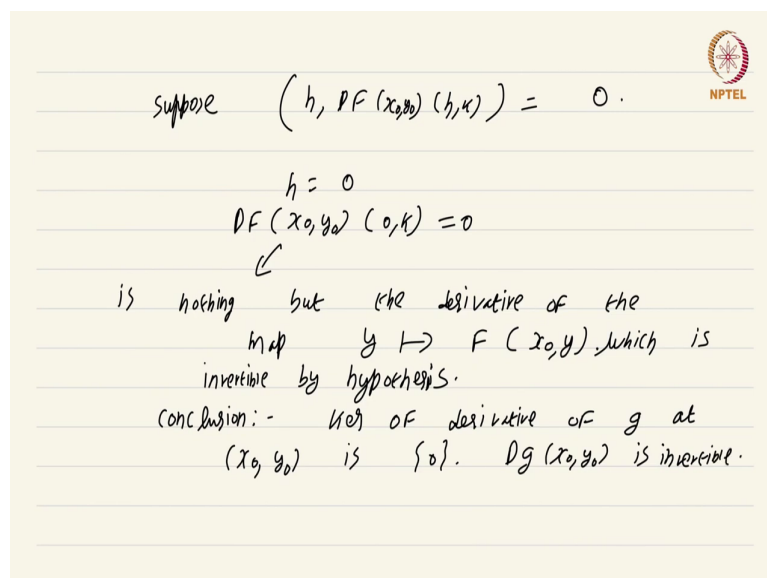 NPTEL
suppose (h, DF(x₀,y₀) (h,k)) = 0.
h = 0
DF(x₀,y₀) (0,k) = 0
is nothing but the derivative of the
map y ↦ F(x₀,y). which is
invertible by hypothesis.
Conclusion:- Ker of derivative of g at
(x₀, y₀) is {0}. Dg(x₀,y₀) is invertible.